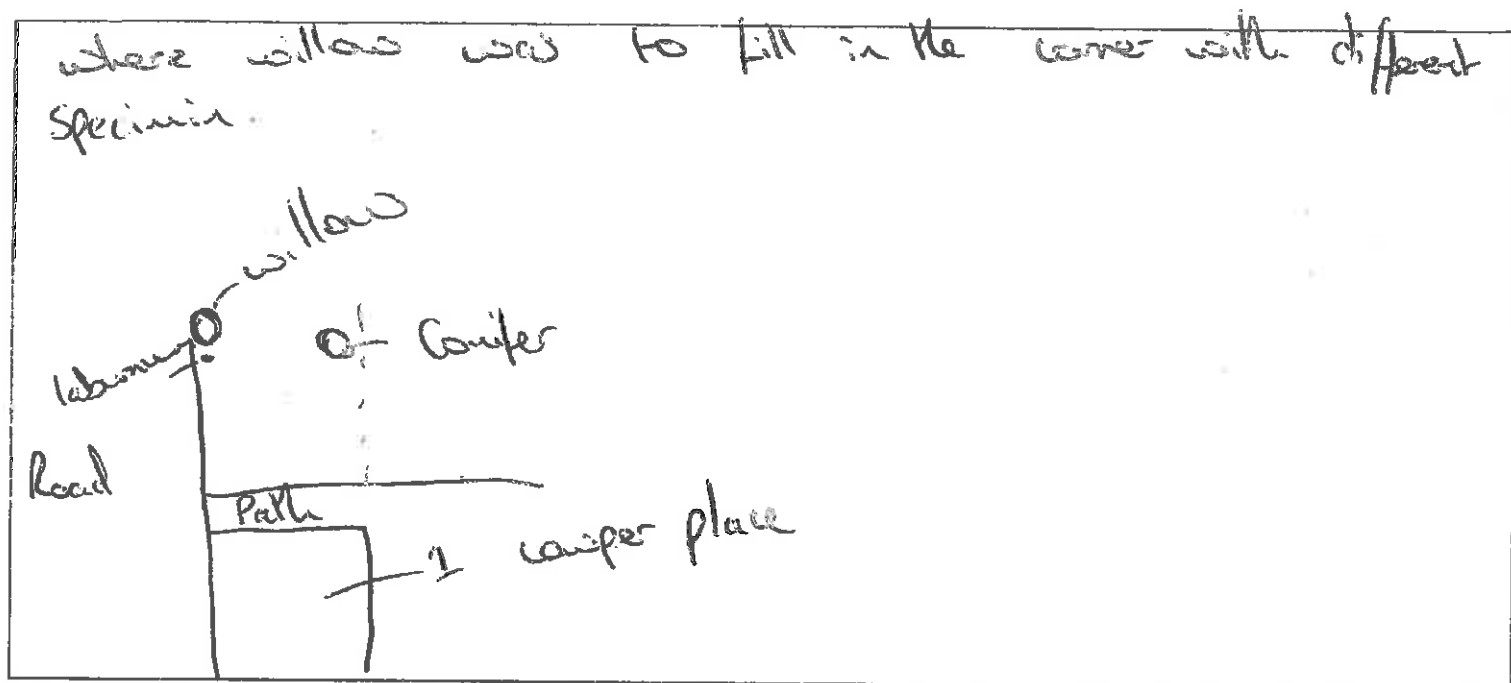 where willow was to fill in the corner with different
Specimin.
willow
Conifer
laburnum
Road
Path
1 conifer place